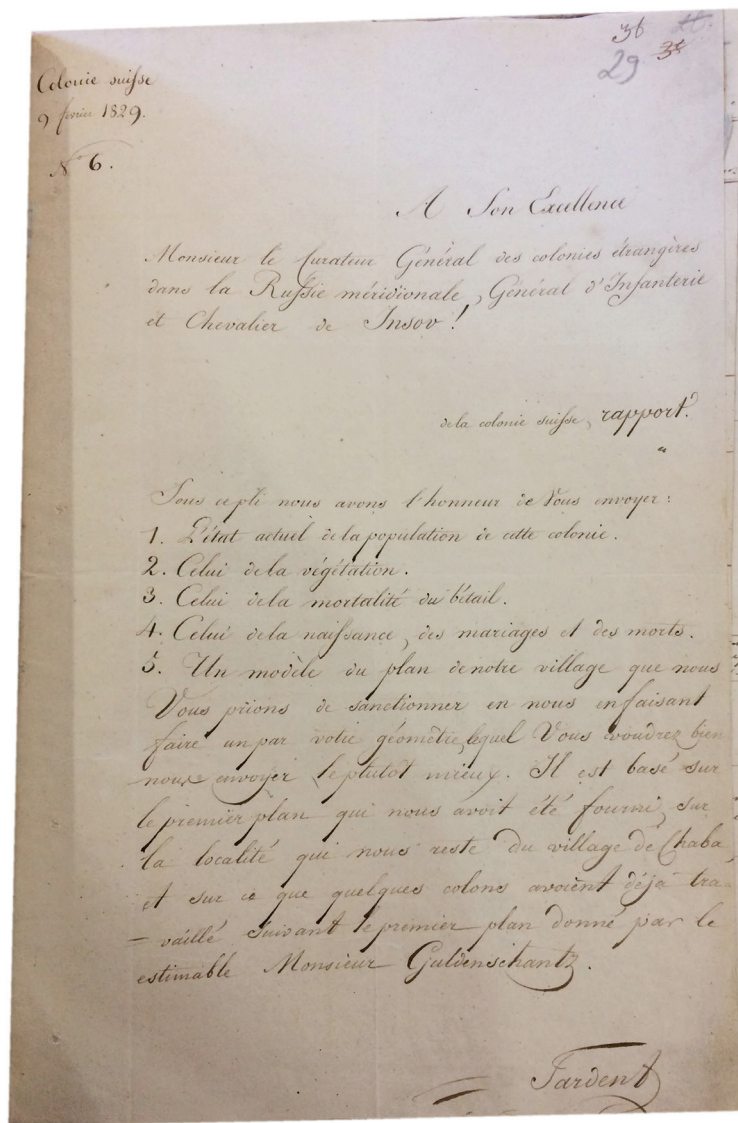 36
29
Colonie suisse
9 fevrier 1829.
N° 6.
A Son Excellence
Monsieur le Curateur Général des colonies étrangères
dans la Russie méridionale, Général d'Infanterie
et Chevalier de Insov!
de la colonie suisse, rapport.
Sous ce pli nous avons l'honneur de Vous envoyer:
1. L'état actuel de la population de cette colonie.
2. Celui de la végétation.
3. Celui de la mortalité du bétail.
4. Celui de la naissance, des mariages et des morts.
5. Un modèle du plan de notre village que nous
Vous prions de sanctionner en nous en faisant
faire un par votre géomètre, lequel Vous voudrez bien
nous envoyer le plutôt mieux. Il est basé sur
le premier plan qui nous avoit été fourni, sur
la localité qui nous reste du village de Chaba
et sur ce que quelques colons avoient déjà tra=
=vaillé suivant le premier plan donné par le
estimable Monsieur Guldenschantz.
Tardent